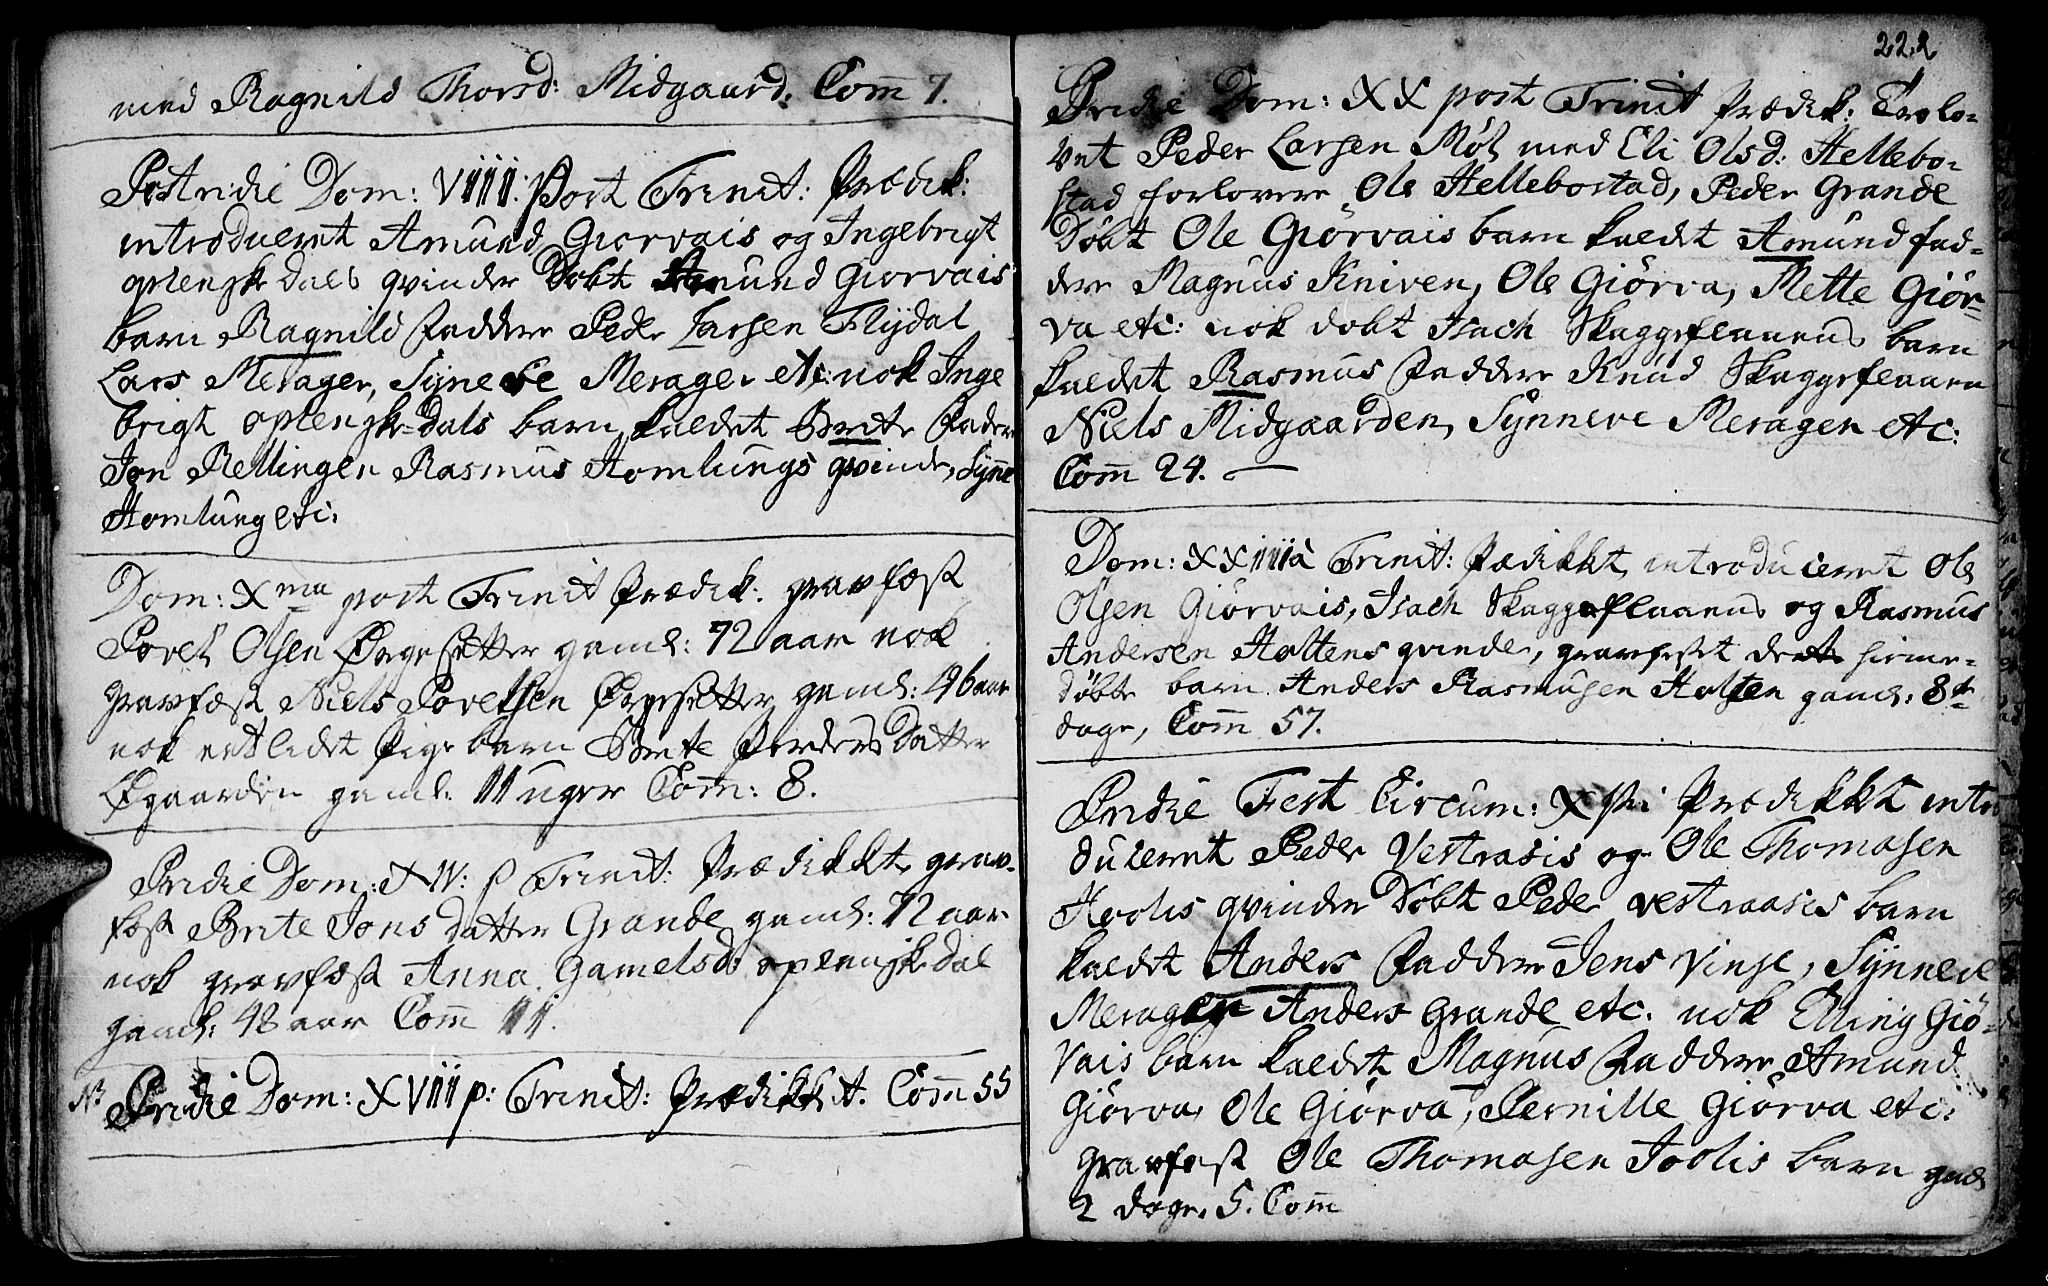 med Ragnild Thorsd: Midgaard. Com̅ 7.
Postridie Dom: VIIII: post Trinit: Prædik:
introduceret Amund Giørvais og Ingebrigt
oplenskedals qvinder Døbt Amund Giørvais
barn Ragnild Faddere Peder Larsen Flÿdal
Lars Merager, Sÿneve Merager etc: nok Inge
brigt oplenske-dals barn kaldet Brite Faddere
Jon Rellingen Rasmus Homlungs qvinde, Sÿnne
Homlung etc:
Dom: Xma post Trinit Prædik. gravfæst
Povel Olsen Ørgesetter gaml: 72 aar nok
gravfæst Niels Povelsen Ørgesetter gaml: 46 aar
nok et lidet Pige barn Brite Peders Datter
Øgaarden gaml: 11 uger Com̅: 8.
Pridie Dom: XIV: p Trinit: Prædikket grav-
fæst Brite Jons datter Grande gaml: 72 aar
nok gravfæst Anna Gamelsd: oplenskedal
gaml: 48 aar Com̅ 11.
Nb Pridie Dom: XVIII p: Trinit: Prædikket. Com̅ 55
222
Pridie Dom: XX post Trinit Prædik: Trolo-
vet Peder Larsen Møl med Eli Olsd: Hellebo-
stad forlovere Ole Hellebostad, Peder Grande
Døbt Ole Giörvais barn kaldet Amund fad-
dere Magnus Kniven, Ole Giörva, Mette Giör-
va etc: nok døbt Isach Skaggeflaaens barn
kaldet Rasmus Faddere Knud Skaggeflaaen
Niels Midgaarden, Sÿnneve Meragen etc:
Com̅ 24.
Dom: XXIIIIa Trinit: Prædikket, introduceret Ole
Olsen Giörvais, Isach Skaggeflaaens og Rasmus
Andersen Holtens qvinder, gravfæstet det hieme-
døbte barn Anders Rasmusen Holten gaml: 8te
dage, Com̅ 57.
Pridie Fest Circum: Xsti Prædikket intro
duceret Peder Vestraasis og Ole Thomasen
Hoolis qvinder Døbt Peder vestraasis barn
kaldet Anders Faddere Jens Vinje, Sÿnneve
Meragen Anders Grande etc. nok Elling Giö-
vais barn kaldet Magnus Faddere Amund
Giörva, Ole Giörva, Pernille Giörva etc:
gravfæst Ole Thomasen Joolis barn gaml
2 dage. 5. Com̅